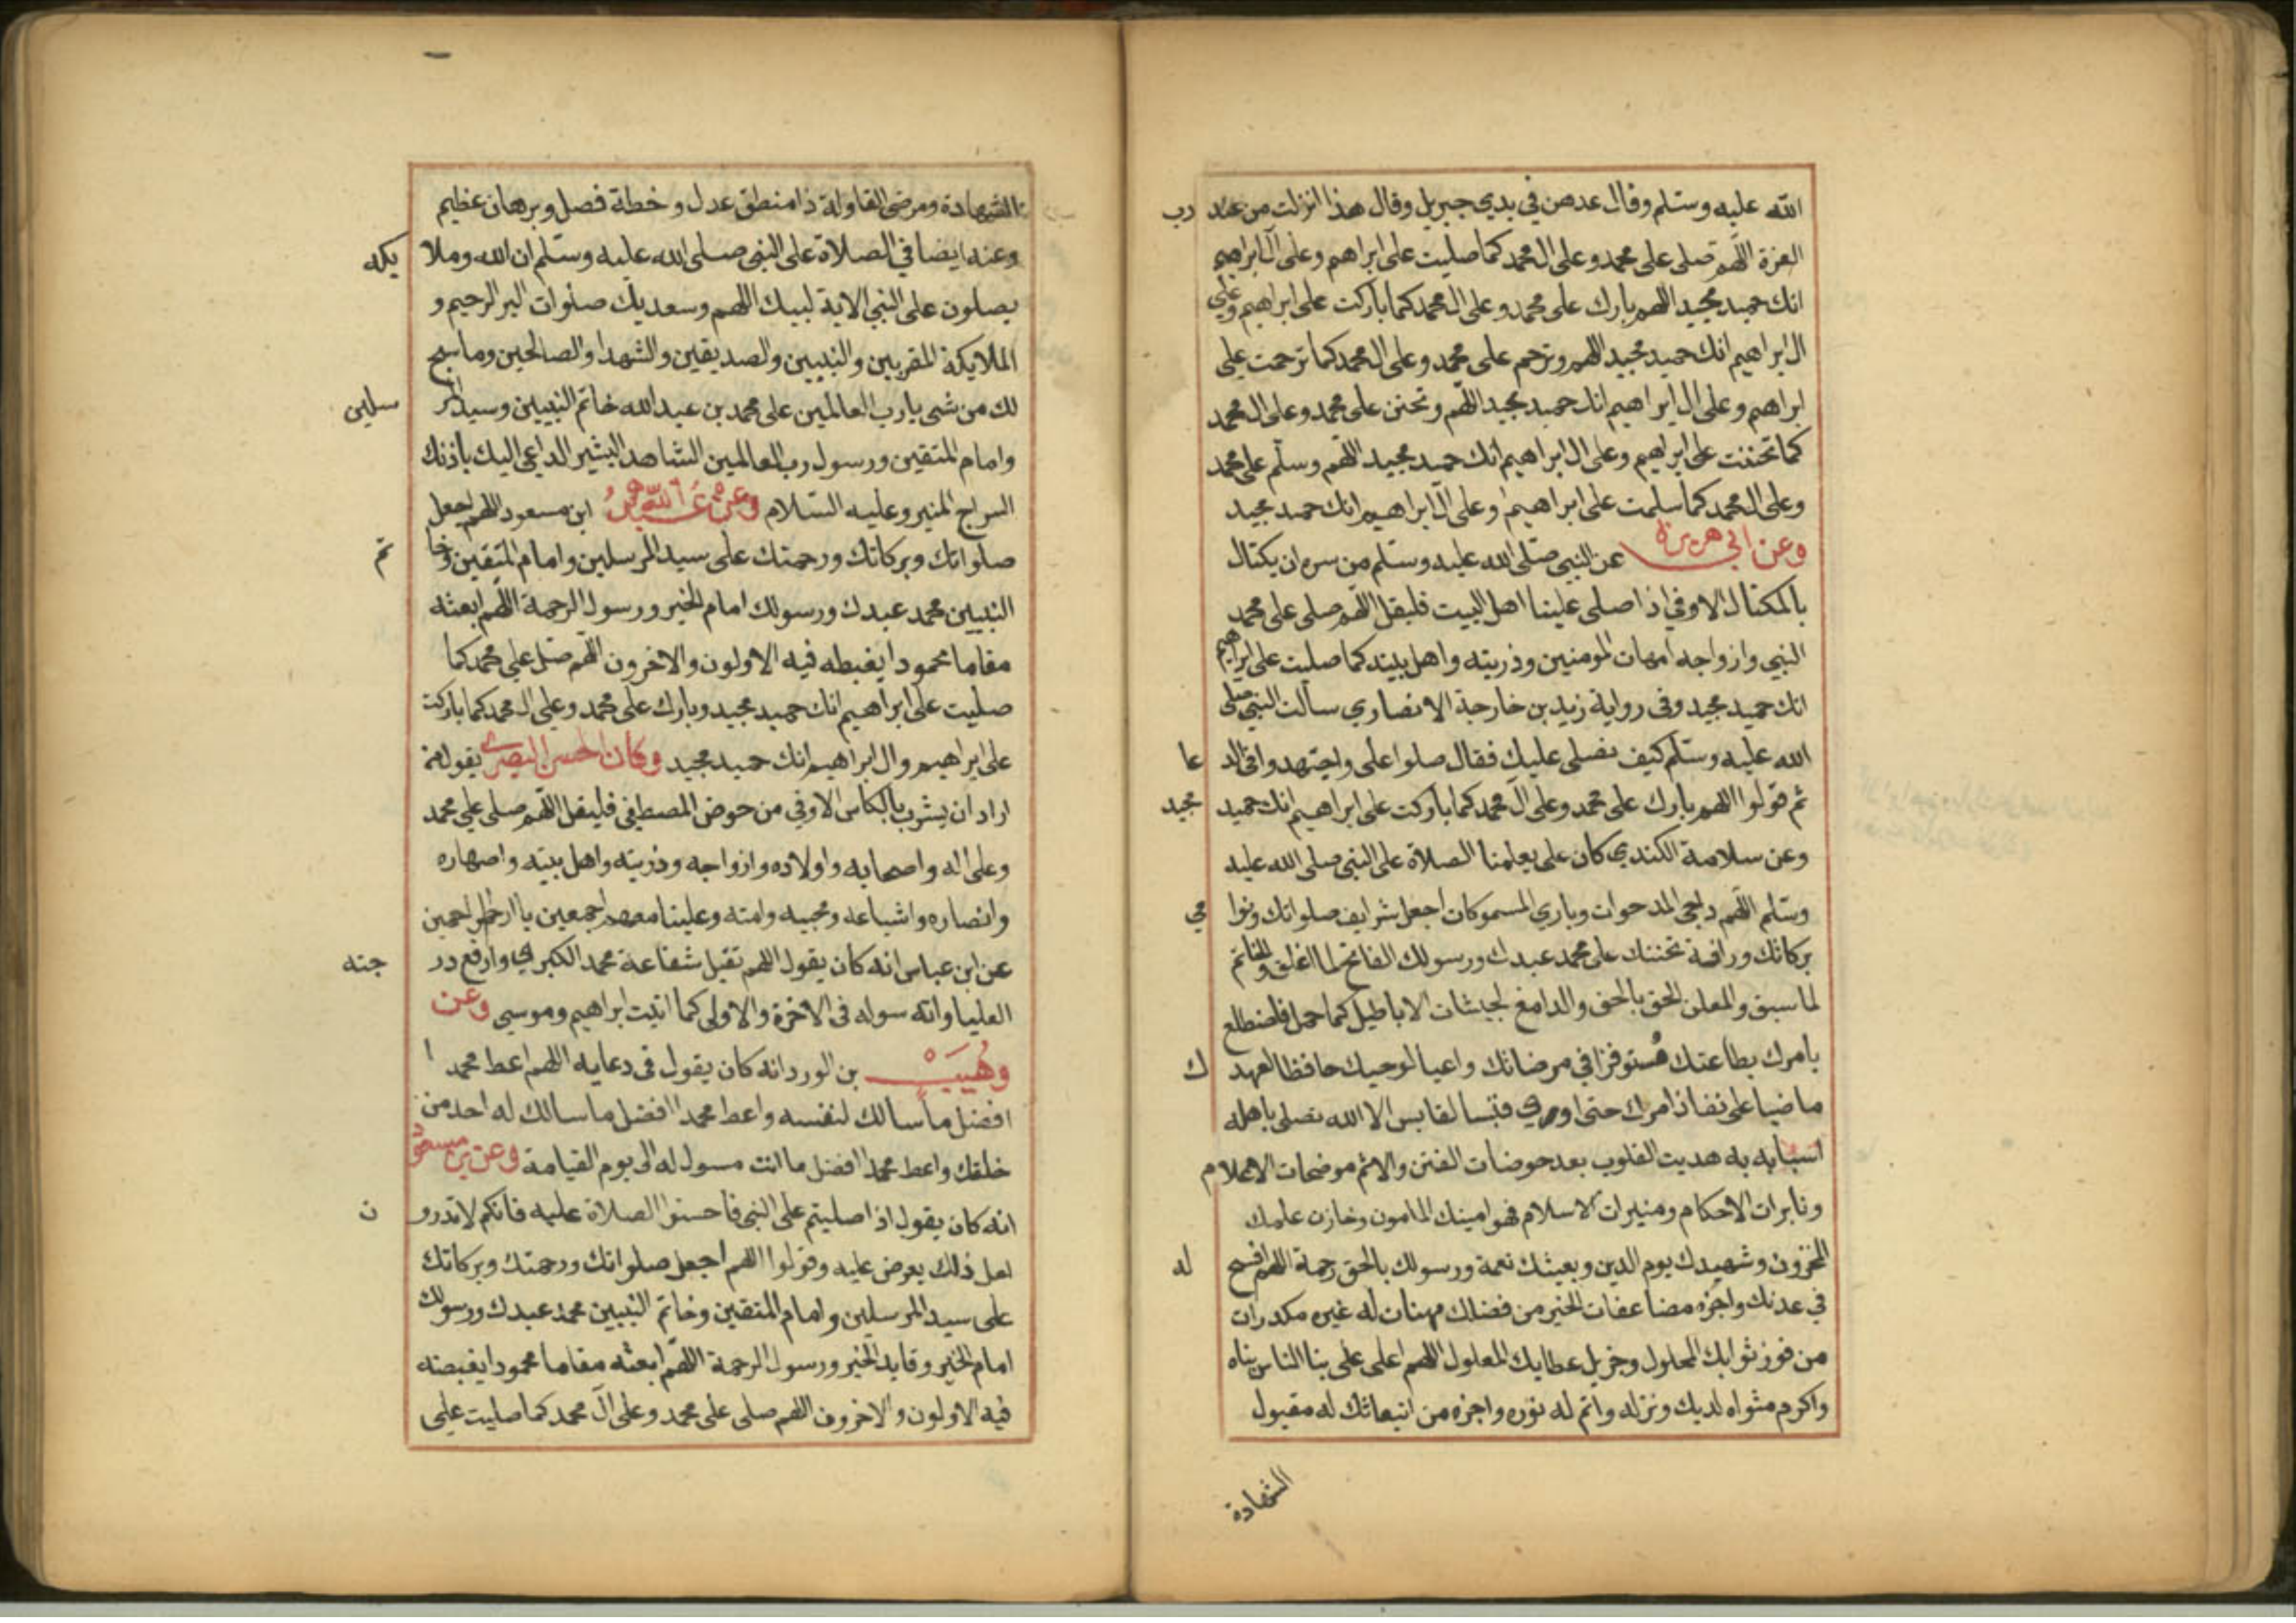 الله عليه وسلم وقال عدهن في يدي جبريل وقال هذا انزلت من عند رب
العزة اللهم صلى على محمد وعلى ال محمد كما صليت على ابراهم وعلى آل ابراهيم
انك حميد مجيد اللهم بارك على محمد وعلى ال محمد كما باركت على ابراهيم وعلى
ال ابراهيم انك حميد مجيد اللهم وترحم على محمد وعلى ال محمد كما ترحمت على
ابراهم وعلى ال ابراهيم انك حميد مجيد اللهم وتحنن على محمد وعلى ال محمد
كما تحننت على ابراهيم وعلى ال ابراهيم انك حميد مجيد اللهم وسلم على محمد
وعلى ال محمد كما سلمت على ابراهيم وعلى آل ابراهيم انك حميد مجيد
وعن ابي هريرة عن النبي صلى الله عليه وسلم من سره ان يكتال
بالمكتال الاوفي اذا صلى علينا اهل البيت فليقل اللهم صلى على محمد
النبي وازواجه امهات المومنين وذريته واهل بيته كما صليت على ابراهيم
انك حميد مجيد وفى رواية زيد بن خارجة الانصاري سالت النبي صلى
الله عليه وسلم كيف نصلى عليك فقال صلوا على واجتهدوا في الدعا
ثم قولوا اللهم بارك على محمد وعلى آل محمد كما باركت على ابراهيم انك حميد مجيد
وعن سلامة الكندي كان على يعلمنا الصلاة على النبي صلى الله عليه
وسلم اللهم داحي المدحوات وباري المسموكات اجعل شرايف صلواتك ونوامي
بركاتك ورافة تحننك على محمد عبدك ورسولك الفاتح لما اغلق والخاتم
لما سبق والمعلن الحق بالحق والدامغ لجيشات الاباطيل كما حمل فاضطلع
بامرك بطاعتك مستوفزا في مرضاتك واعيا لوحيك حافظا لعهدك
ماضيا على نفاذ امرك حتى اورى قبسا لقابس الا الله نصلى باهله
اسبابه به هديت القلوب بعد حوضات الفتن والاثم موضحات الاعلام
ونايرات الاحكام ومنيرات الاسلام فهو امينك المامون وخازن علمك
المخزون وشهيدك يوم الدين وبعيثك نعمة ورسولك بالحق رحمة اللهم افسح له
في عدنك واجزه مضاعفات الخير من فضلك مهنات له غيره مكدرات
من فوز ثوابك المحلول وجزيل عطايك المعلول اللهم اعلى على بنا الناس بناه
واكرم مثواه لديك ونزله واتم له نوره واجزه من ابتعاثك له مقبول
الشهادة
الشهادة ومرضى القاولة ذا منطق عدل وخطة فصل وبرهان عظيم
وعنه ايضا في الصلاة على النبي صلى الله عليه وسلم ان الله وملايكه
يصلون على النبي الاية لبيك اللهم وسعديك صلوات البر الرحيم و
الملايكة المقربين والنبيين والصديقين والشهدا والصالحين وما سبح
لك من شى يا رب العالمين على محمد بن عبد الله خاتم النبيين وسيد المرسلين
وامام المتقين ورسول رب العالمين الشاهد البشير الداعي اليك باذنك
السراج المنير وعليه السلام وعن عبد الله ابن مسعود اللهم اجعل
صلواتك وبركاتك ورحمتك على سيد المرسلين وامام المتقين وخاتم
النبيين محمد عبدك ورسولك امام الخير ورسول الرحمة اللهم ابعثه
مقاما محمودا يغبطه فيه الاولون والاخرون اللهم صل على محمد كما
صليت على ابراهيم انك حميد مجيد وبارك على محمد وعلى ال محمد كما باركت
على ابراهيم وال ابراهيم انك حميد مجيد وكان الحسن البصري يقول من
اراد ان يشرب بالكاس الاوفي من حوض المصطفى فليقل اللهم صلى على محمد
وعلى اله واصحابه واولاده وازواجه وذريته واهل بيته واصهاره
وانصاره واشياعه ومحبيه وامته وعلينا معهم اجمعين يا ارحم الراحمين
عن ابن عباس انه كان يقول اللهم تقبل شفاعة محمد الكبرى وارفع درجته
العليا واته سوله فى الاخرة والاولى كما اتيت ابراهيم وموسى وعن
وهيب بن الورد انه كان يقول فى دعايه اللهم اعط محمدا
افضل ما سالك لنفسه واعط محمدا افضل ما سالك له احد من
خلقك واعط محمدا افضل ما انت مسول له الى يوم القيامة وعن بن مسعود
انه كان يقول اذا صليتم على النبي فاحسنوا الصلاة عليه فانكم لا تدرون
لعل ذلك يعرض عليه وقولوا اللهم اجعل صلواتك ورحمتك وبركاتك
على سيد المرسلين وامام المتقين وخاتم النبيين محمد عبدك ورسولك
امام الخير وقايد الخير ورسول الرحمة اللهم ابعثه مقاما محمودا يغبصه
فيه الاولون والاخرون اللهم صلى على محمد وعلى آل محمد كما صليت على